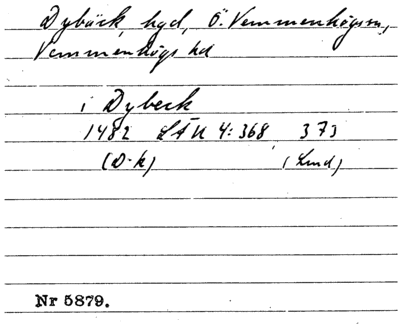 Dybäck, hgd, Ö. Vemmenhögs sn,
Vemmenhögs hd
i Dybeck
1482 LÅU 4:368, 373
(D-k) (Lund)
Nr 5879.